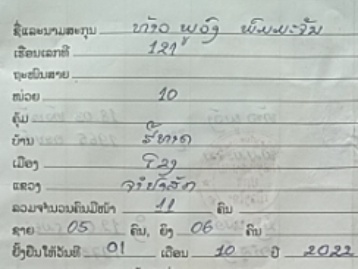 ຊື່ແລະນາມສະກຸນ ທ້າວ ພູວົງ ພົມມະຈັນ
ເຮືອນເລກທີ 121
ຖະໜົນສາຍ
ໜ່ວຍ 10
ຄຸ້ມ
ບ້ານ
ເມືອງ ໂຂງ
ແຂວງ ຈຳປາສັກ
ລວມຈຳນວນຄົນມີໜ້າ 11 ຄົນ
ຊາຍ 05 ຄົນ, ຍິງ 06 ຄົນ
ຢັ້ງຢືນໃຫ້ວັນທີ 01 ເດືອນ 10 ປີ 2022